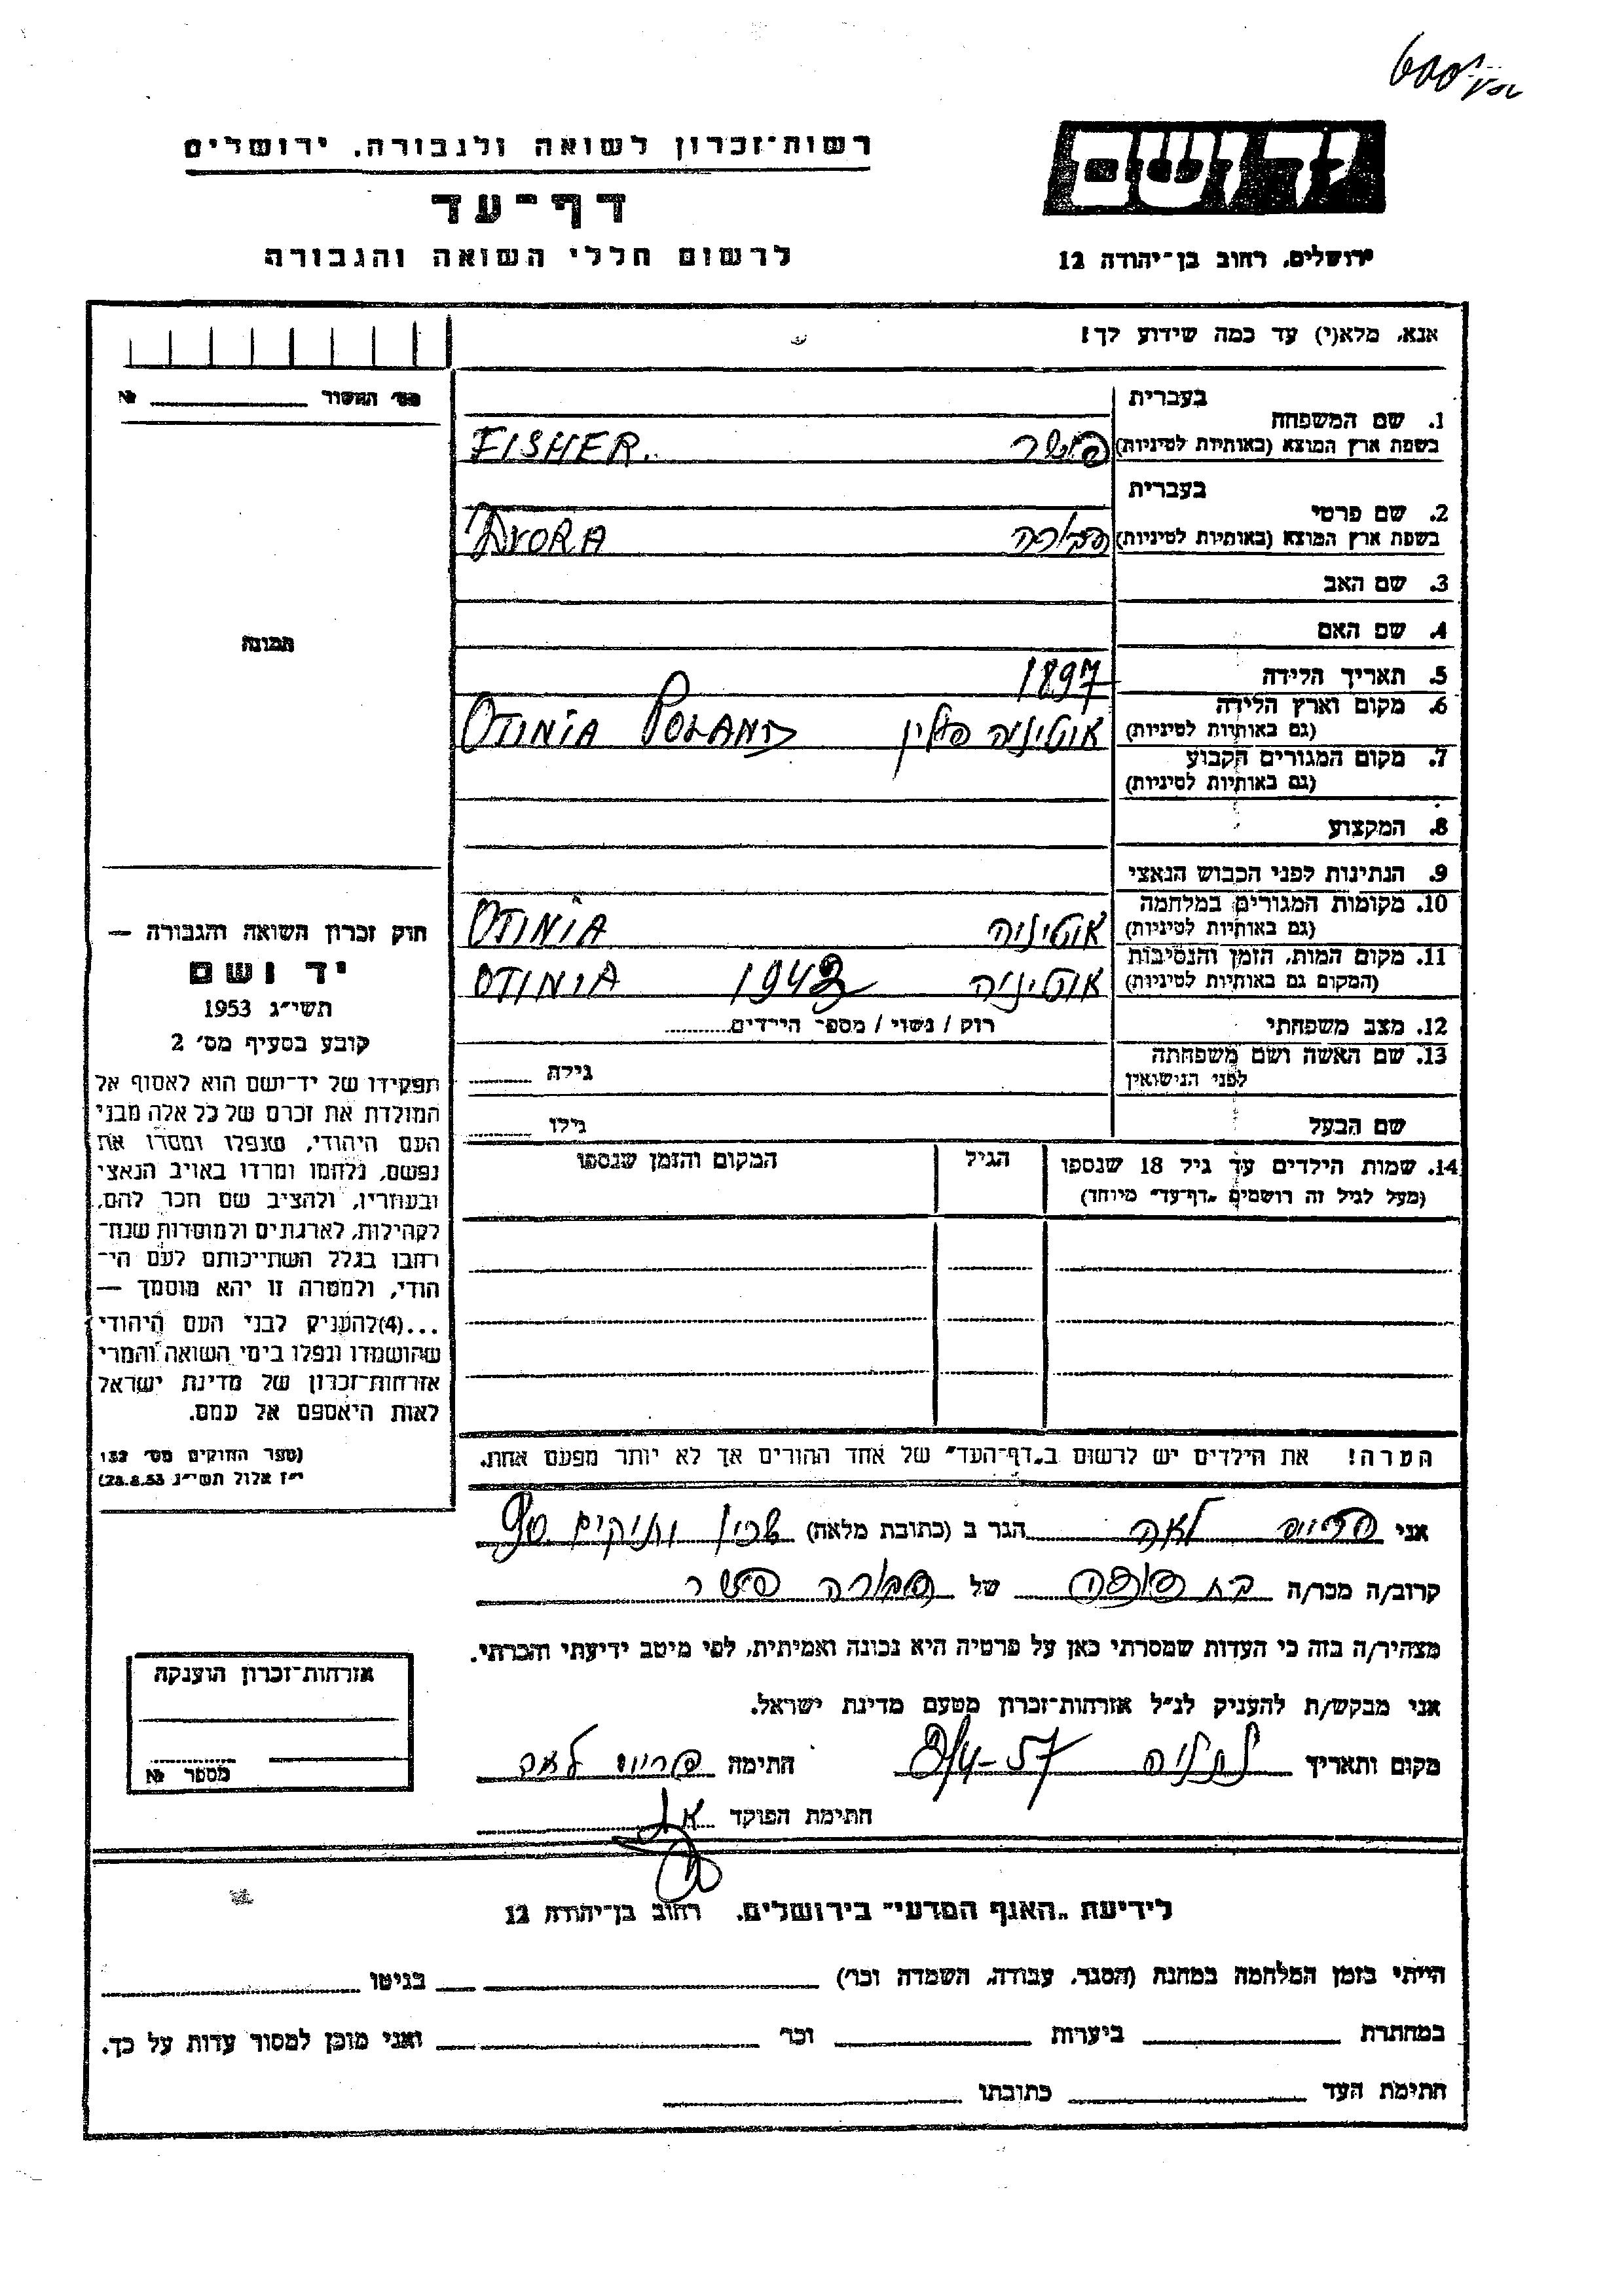 יד ושם
ירושלים, רחוב בן־יהודה 12
רשות־זכרון לשואה ולגבורה, ירושלים
דף־עד
לרשום חללי השואה והגבורה
אנא, מלא(י) עד כמה שידוע לך!
מס' התשור №
תמונה
בעברית
1. שם המשפחה
בשפת ארץ המוצא (באותיות לטיניות) פישר FISHER.
בעברית
2. שם פרטי
בשפת ארץ המוצא (באותיות לטיניות) דבורה DVORA
3. שם האב
4. שם האם
5. תאריך הלידה 1897
6. מקום וארץ הלידה
(גם באותיות לטיניות) אוטיניה פולין OTINIA POLAND
7. מקום המגורים הקבוע
(גם באותיות לטיניות)
8. המקצוע
9. הנתינות לפני הכבוש הנאצי
10. מקומות המגורים במלחמה
(גם באותיות לטיניות) אוטיניה OTINIA
11. מקום המות, הזמן והנסיבות
(המקום גם באותיות לטיניות) אוטיניה OTINIA
12. מצב משפחתי רוק / נשוי / מספר הילדים
13. שם האשה ושם משפחתה
לפני הנישואין גילה
שם הבעל גילו
14. שמות הילדים עד גיל 18 שנספו הגיל המקום והזמן שנספו
(מעל לגיל זה רושמים „דף־עד" מיוחד)
הערה! את הילדים יש לרשום ב„דף־העד" של אחד ההורים אך לא יותר מפעם אחת.
חוק זכרון השואה והגבורה —
יד ושם
תשי"ג 1953
קובע בסעיף מס' 2
תפקידו של יד־ושם הוא לאסוף אל
המולדת את זכרם של כל אלה מבני
העם היהודי, שנפלו ומסרו את
נפשם, נלחמו ומרדו באויב הנאצי
ובעוזריו, ולהציב שם וזכר להם,
לקהילות, לארגונים ולמוסדות שנח־
רבו בגלל השתייכותם לעם הי־
הודי, ולמטרה זו יהא מוסמך —
...(4) להעניק לבני העם היהודי
שהושמדו ונפלו בימי השואה והמרי
אזרחות־זכרון של מדינת ישראל
לאות היאספם אל עמם.
(ספר החוקים מס' 132
י"ז אלול תשי"ג 28.8.53)
אני לאה הגר ב (כתובת מלאה) שכון ותיקים
קרוב/ה מכר/ה של דבורה פישר
מצהיר/ה בזה כי העדות שמסרתי כאן על פרטיה היא נכונה ואמיתית, לפי מיטב ידיעתי והכרתי.
אני מבקש/ת להעניק לנ"ל אזרחות־זכרון מטעם מדינת ישראל.
מקום ותאריך נתניה חתימה לאה
חתימת הפוקד
אזרחות־זכרון הוענקה
מספר №
לידיעת „האגף המדעי" בירושלים, רחוב בן־יהודה 12
הייתי בזמן המלחמה במחנה (הסגר, עבודה, השמדה וכר') בגיטו
במחתרת ביערות וכר' ואני מוכן למסור עדות על כך.
חתימת העד כתובתו